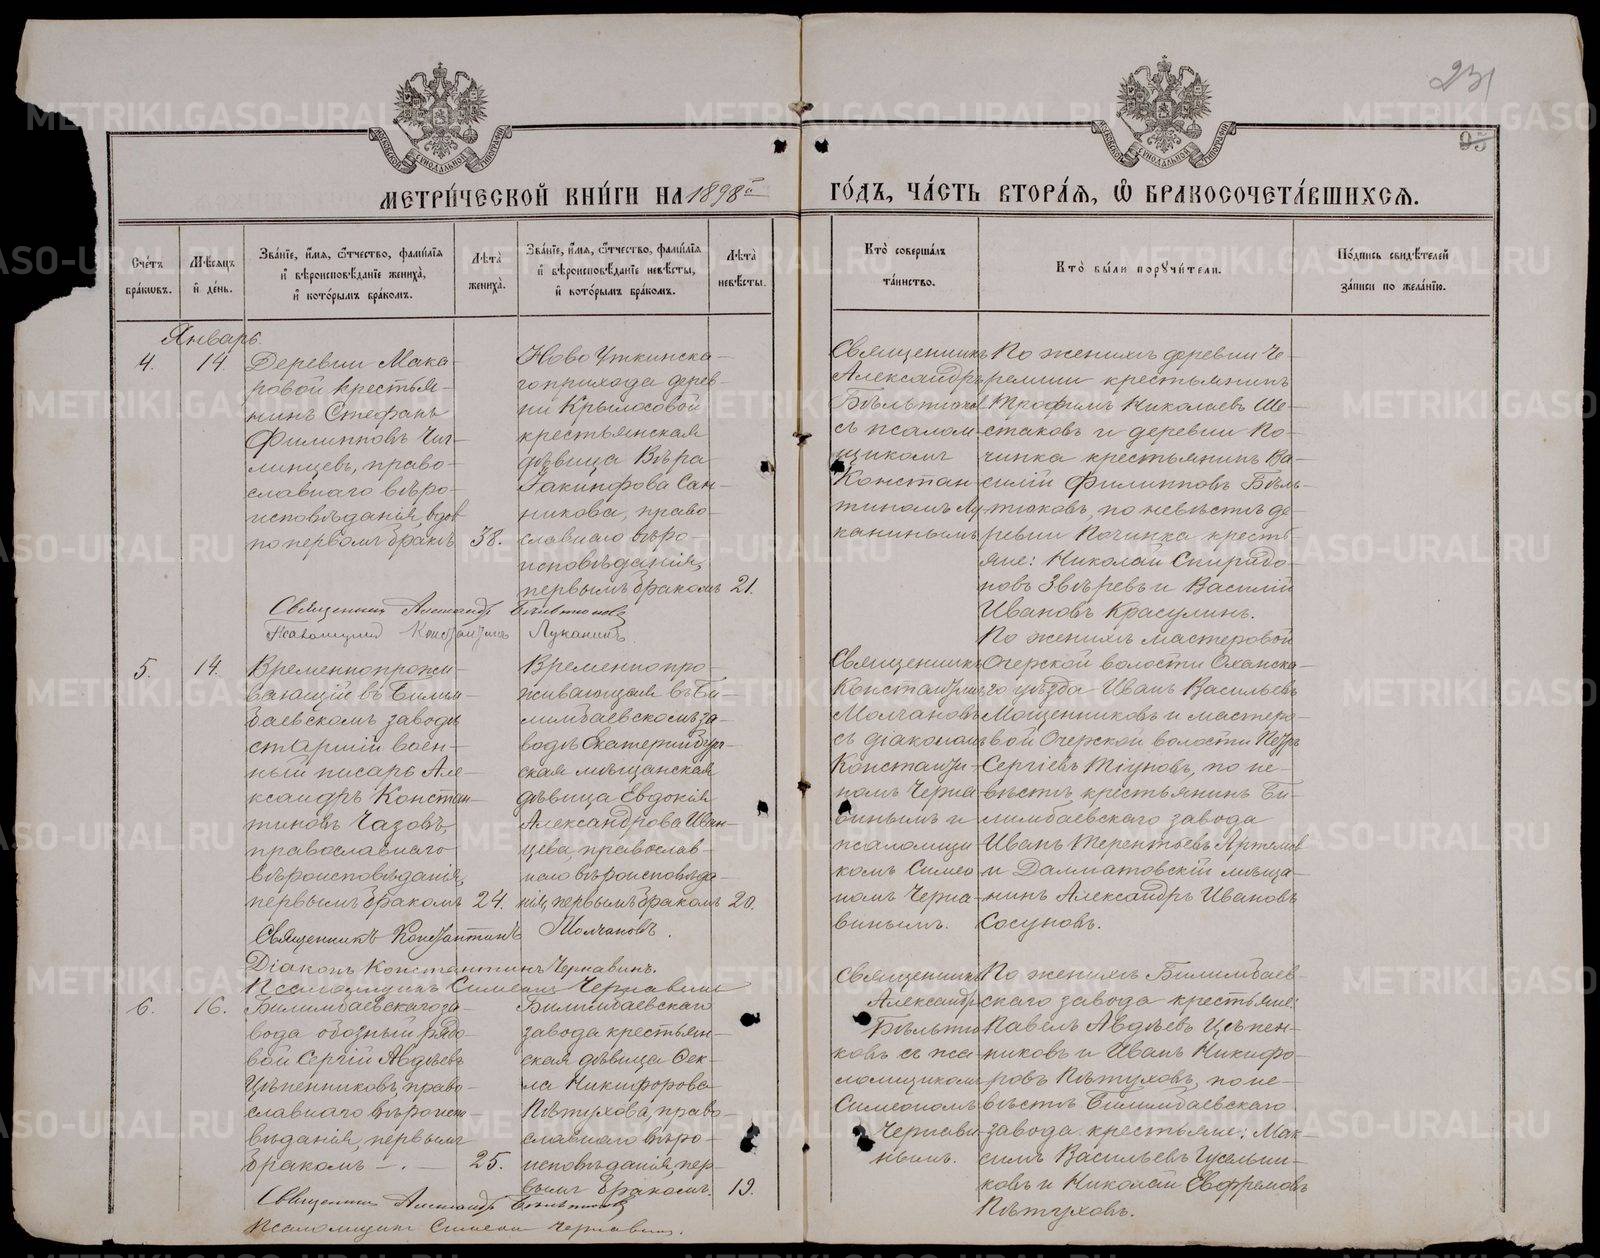 231
95
МЕТРИ́ЧЕСКОЙ КНИ́ГИ НА 1898й
ГО́ДЪ, ЧА́СТЬ ВТОРА́Я, Ѿ БРАКОСОЧЕТА́ВШИХСЯ.
Сче́тъ бра́ковъ.
Мѣ́сяцъ и́ де́нь.
Зва́нїе, и́мя, ѻ́тчество, фами́лїя и҆ вѣроисповѣ́данїе жениха̀, и҆ кото́рымъ бра́комъ.
Лѣ́та жениха̀.
Зва́нїе, и́мя, ѻ́тчество, фами́лїя и҆ вѣроисповѣ́данїе невѣ́сты, и҆ кото́рымъ бра́комъ.
Лѣ́та невѣ́сты.
Кто̀ соверша́лъ та́инство.
Кто̀ бы́ли порꙋчи́тели.
По́дпись свидѣ́телей за́писи по жела́нїю.
Январь.
4.
14.
Деревни Мака-
ровой крестья-
нинъ Стефанъ
Филипповъ Чиг-
линцевъ, право-
славнаго вѣро-
исповѣданія, вдов
по первомъ бракѣ
38.
Ново Уткинска-
го прихода дерев-
ни Крылосовой
крестьянская
дѣвица Вѣра
Іакинфова Сан-
никова, право-
славнаго вѣро-
исповѣданія,
первымъ бракомъ
21.
Священникъ
Александръ
Бѣльтюков
съ псалом-
щикомъ
Констан-
тиномъ Лу-
канинымъ
По женихѣ деревни Че-
ремши крестьянинъ
Трофимъ Николаевъ Ше-
стаковъ и деревни По-
чинка крестьянинъ Ва-
силій Филипповъ Бѣль-
тюковъ, по невѣстѣ де-
ревни Починка кресть-
яне: Николай Спиридо-
новъ Звѣревъ и Василій
Ивановъ Красулинъ.
Священникъ Александръ Бѣльтюковъ
Псаломщикъ Константинъ Луканинъ.
5.
14.
Временнопрожи-
вающій въ Билим-
баевскомъ заводѣ
старшій воен-
ный писарь Але-
ксандръ Констан-
тиновъ Чазовъ,
православнаго
вѣроисповѣданія,
первымъ бракомъ
24.
Временно про-
живающая въ Би-
лимбаевскомъ за-
водѣ Екатеринбург-
ская мѣщанская
дѣвица Евдокія
Александрова Иван-
цева, православ-
наго вѣроисповѣда-
нія, первымъ бракомъ
20.
Священникъ
Константинъ
Молчановъ
съ діакономъ
Константи-
номъ Черна-
винымъ и
псаломщи
комъ Симео
номъ Черна-
винымъ.
По женихѣ мастеровой
Очерской волости Оханска-
го уѣзда Иванъ Васильевъ
Мощенниковъ и мастеро-
вой Очерской волости Петръ
Сергіевъ Тіуновъ, по не-
вѣстѣ крестьянинъ Би-
лимбаевскаго завода
Иванъ Терентьевъ Артемов
и Далматовскій мѣща-
нинъ Александръ Ивановъ
Сосуновъ.
Священникъ Константинъ Молчановъ.
Діаконъ Константинъ Чернавинъ.
Псаломщикъ Симеонъ Чернавинъ
6.
16.
Билимбаевскаго за-
вода обозный рядо-
вой Сергій Авдѣевъ
Цѣпенниковъ, право-
славнаго вѣроиспо-
вѣданія, первымъ
бракомъ –.–
25.
Билимбаевскаго
завода крестьян-
ская дѣвица Ѳек-
ла Никифорова
Пѣтухова, право-
славнаго вѣро-
исповѣданія, пер-
вымъ бракомъ.
19.
Священникъ
Александръ
Бѣльтю-
ковъ съ пса-
ломщикомъ
Симеономъ
Чернави-
нымъ.
По женихѣ Билимбаев-
скаго завода крестьяне:
Павелъ Авдѣевъ Цѣпен-
никовъ и Иванъ Никифо-
ровъ Пѣтуховъ, по не-
вѣстѣ Билимбаевскаго
завода крестьяне: Мак-
симъ Васильевъ Гусельни-
ковъ и Николай Евфремовъ
Пѣтуховъ.
Священникъ Александръ Бѣльтюковъ
Псаломщикъ Симеонъ Чернавинъ.
METRIKI.GASO-URAL.RU